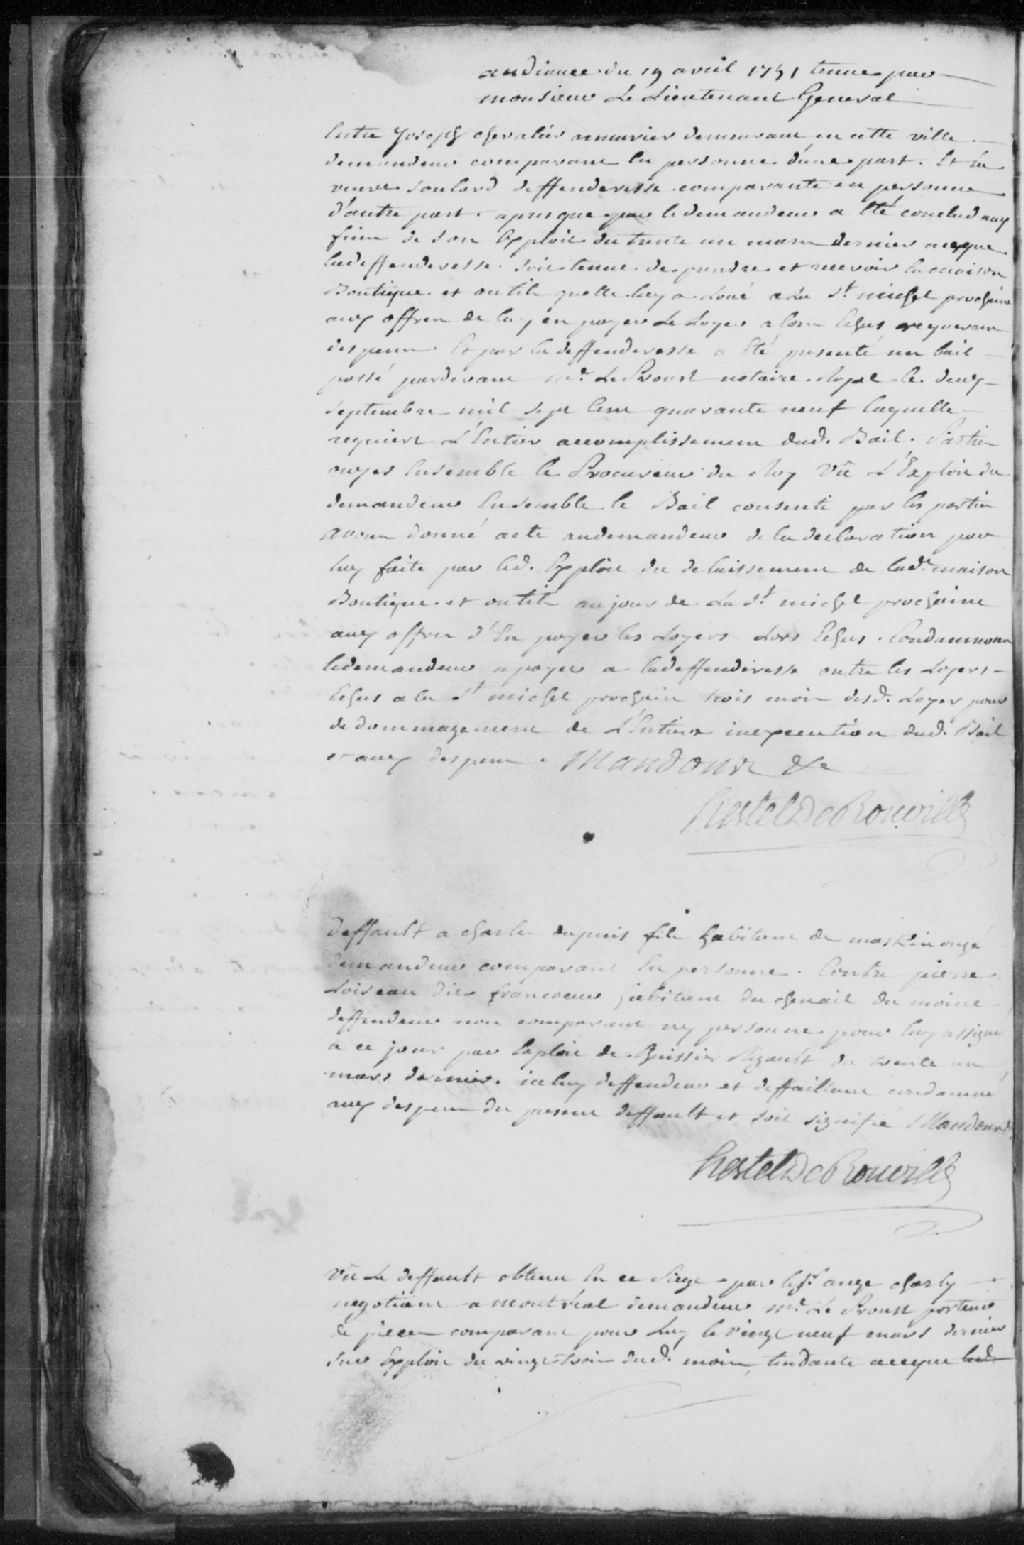 audiance du 19 avril 1751 tenue par
monsieur Le Lieutenant General
Entre Joseph chevalier armurier demeurant en cette ville
demandeur comparant En personne d'une part. Et la
veuve soulard deffenderesse comparante en personne
d'autre part. apres que par le demandeur a Eté conclud aux
fins de son Exploit du trente un mars dernier a ce que
lad deffenderesse soit tenue de prendre et recevoir la maison
Boutique et outils quelle luy a Loué a La St michel prochaine
aux offres de luy en payer Le Loyer alors Echus requerant
despens Et par la deffenderesse a Eté presenté un bail
passé pardevant me. Le Proust notaire Royal le deux
septembre mil sept Cent quarante neuf laquelle
requiert L'Entier accomplissement dud. Bail. Parties
ouyes Ensemble le Procureur du Roy Vû L'Exploit du
demandeur Ensemble le Bail consenti par les parties
avons donné acte au demandeur de la declaration par
luy faite par led. Exploit du delaissement de lade. maison
Boutique et outils au jour de La St michel prochaine
aux offres d'En payer les Loyers Lors Echus. Condamnons
le demandeur a payer a lad deffenderesse outre les Loyers
Echus a la St michel prochain trois mois desd. Loyers pour
dedommagement de L'Entiere inexecution dud. Bail
et aux despens. Mandons &c
hertel De Rouville
deffault a charles dupuis fils habitant de maskinongé
demandeur comparant En personne. Contre pierre
Loiseau dit francoeur habitant du chenail du moine
deffendeur non comparant ny personne pour luy assigné
a ce jour par Exploit de huissier Rigault du trente un
mars dernier. iceluy deffendeur et deffaillant condamné
aux despens du present deffault et soit signifié Mandons &c
hertel De Rouville
Vû Le deffault obtenu En ce Siege par le Sr. ange charly
negotiant a Montréal demandeur me. Le Proust porteur
de pieces comparant pour Luy le vingt neuf mars dernier
sur Exploit du vingt trois dud. mois, tendante a ce que led